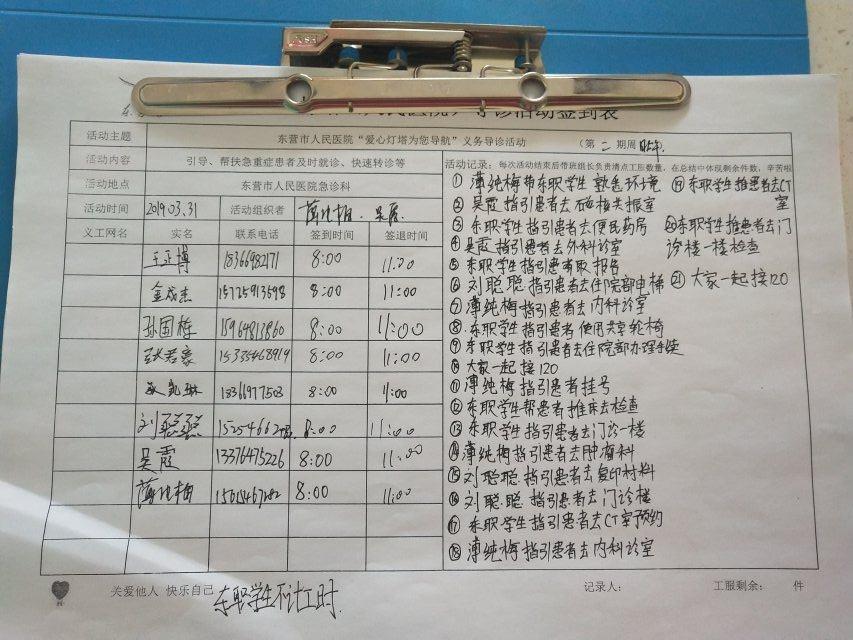 导诊活动签到表
活动主题 东营市人民医院“爱心灯塔为您导航”义务导诊活动 (第二期周
活动内容 引导、帮扶急重症患者及时就诊、快速转诊等
活动地点 东营市人民医院急诊科
活动时间 2019.03.31 活动组织者 薄纯梅 吴霞
义工网名 实名 联系电话 签到时间 签退时间
王正博 18366982171 8:00 11:00
金成杰 15725913598 8:00 11:00
孙国栋 15964813860 8:00 11:00
张若豪 15335468919 8:00 11:00
18361977503 8:00 11:00
刘聪聪 8:00 11:00
吴霞 13376475226 8:00 11:00
薄纯梅 8:00 11:00
活动记录：每次活动结束后带班组长负责清点工服数量，在总结中体现剩余件数，辛苦啦
① 薄纯梅带东职学生熟悉环境
② 吴霞指引患者去磁共振室
③ 东职学生指引患者去便民药房
④ 吴霞指引患者去外科诊室
⑤ 东职学生指引患者取报告
⑥ 刘聪聪指引患者去住院部电梯
⑦ 薄纯梅指引患者去内科诊室
⑧ 东职学生指引患者使用共享轮椅
⑨ 东职学生指引患者去住院部办理手续
⑩ 大家一起接120
⑪ 薄纯梅指引患者挂号
⑫ 东职学生帮患者推床去检查
⑬ 东职学生指引患者去门诊一楼
⑭ 薄纯梅指引患者去肿瘤科
⑮ 刘聪聪指引患者去复印材料
⑯ 刘聪聪指引患者去门诊楼
⑰ 东职学生指引患者去CT室预约
⑱ 薄纯梅指引患者去内科诊室
⑲ 东职学生推患者去CT
室
⑳ 东职学生推患者去门
诊楼一楼检查
㉑ 大家一起接120
关爱他人 快乐自己 东职学生不计工时 记录人： 工服剩余： 件